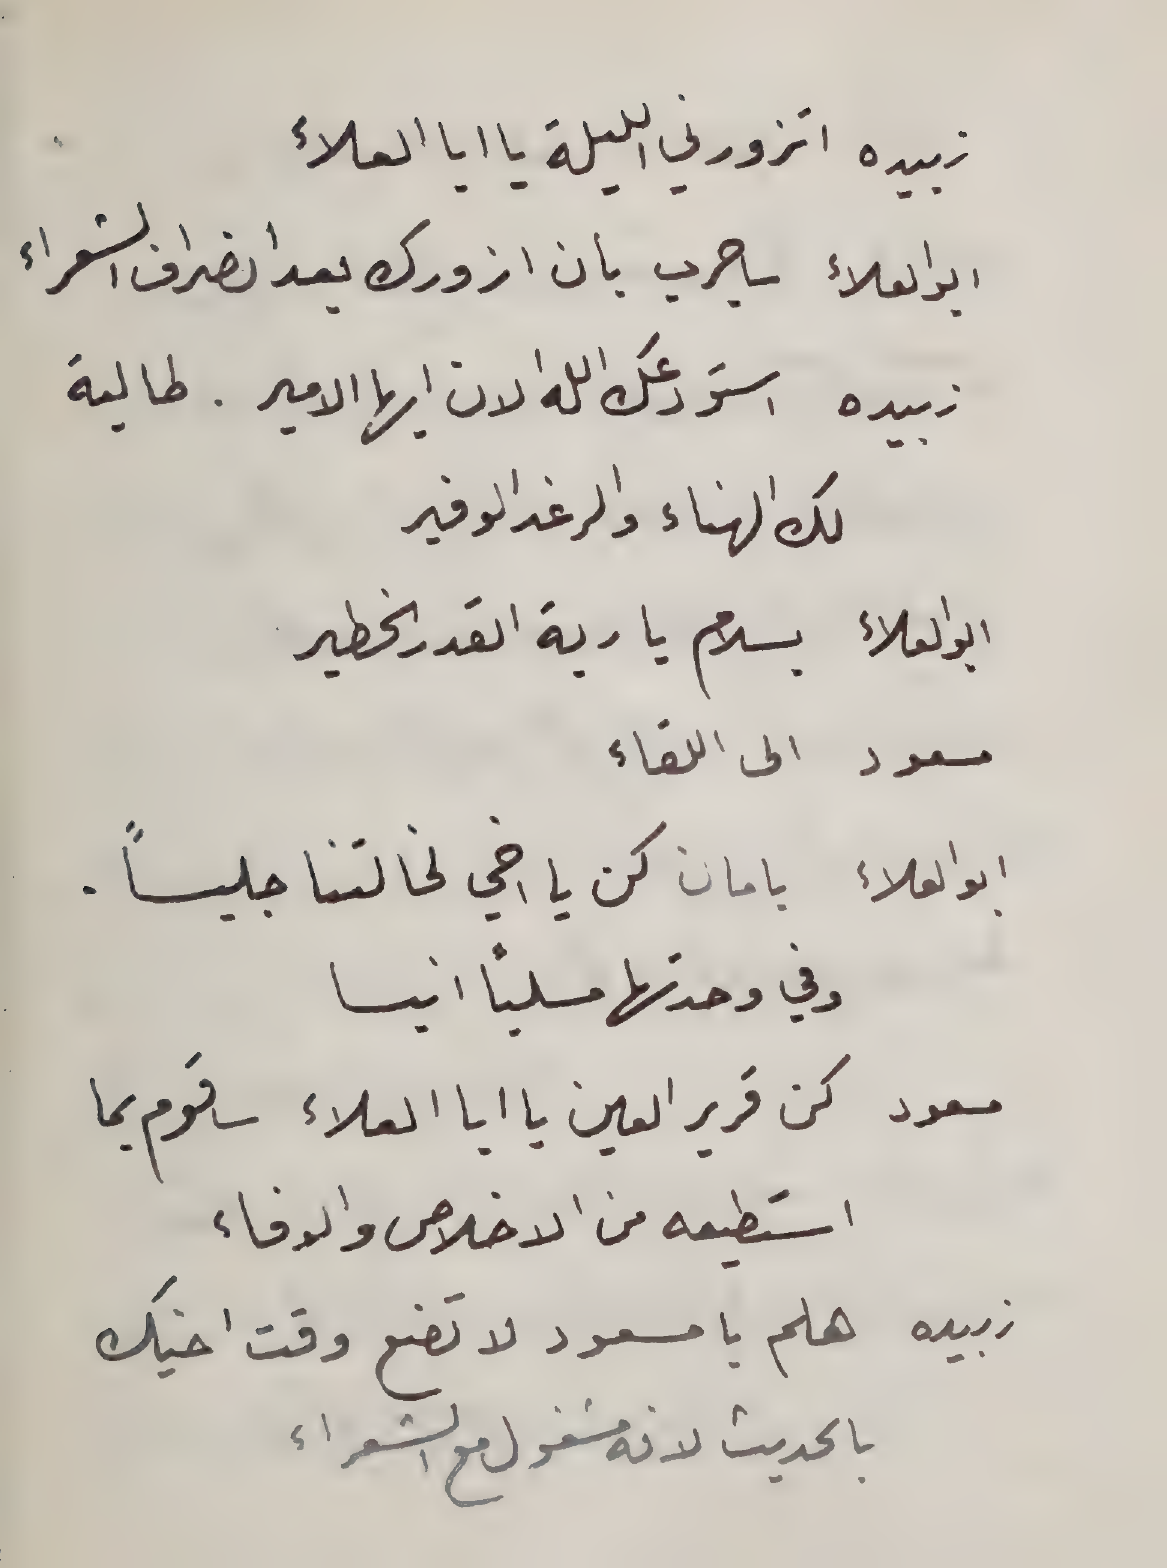 زبيده اتزورني الليلة يا ابا العلاء
ابو العلاء ساجرب بأن ازورك بعد انصراف الشعراء
زبيده استودعك الله الان ايها الامير . طالبة
لك الهناء والرغد الوفير
ابو العلاء بسلام يا ربة القدر الخطير
مسعود الى اللقاء
ابو العلاء بامان كن يا اخي لخالتنا جليساً .
وفي وحدتها مسلياً انيسا
مسعود كن قرير العين يا ابا العلاء ساقوم بما
استطيعه من الاخلاص والوفاء
زبيده هلم يا مسعود لا تضع وقت اخيك
بالحديث لانه مشغول مع الشعراء